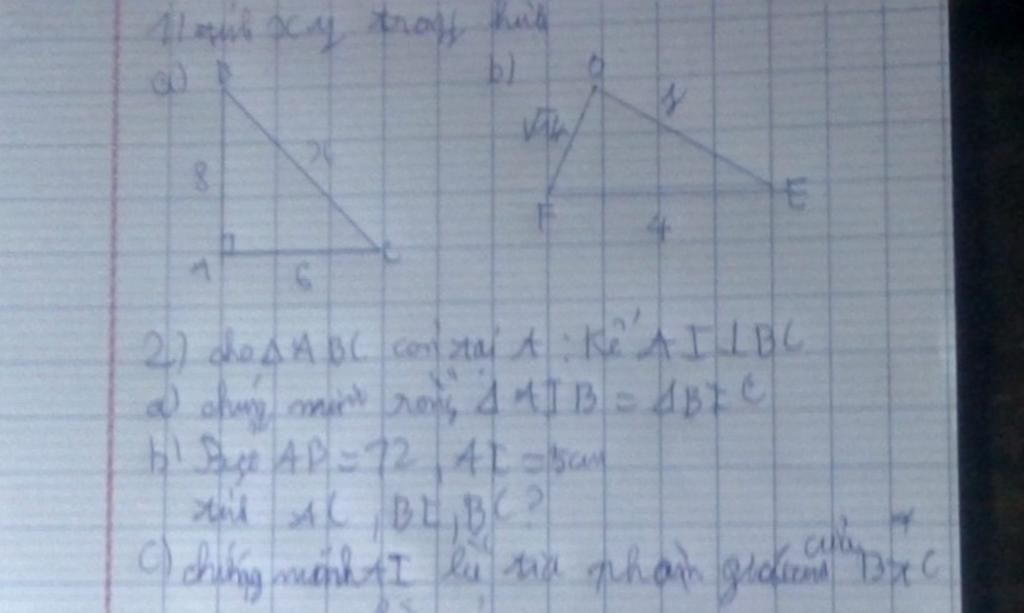 1) tính x, y trong hình
a) B b) O
8 x √14 y
A 6 C F 4 E
2) cho ΔABC cân tại A : Kẻ AI ⊥ BC
a) chứng minh rằng ΔAIB = ΔBIC
b) Biết AB = 12, AI = 5cm
tính AC, BI, BC?
c) chứng minh AI là tia phân giác của BAC